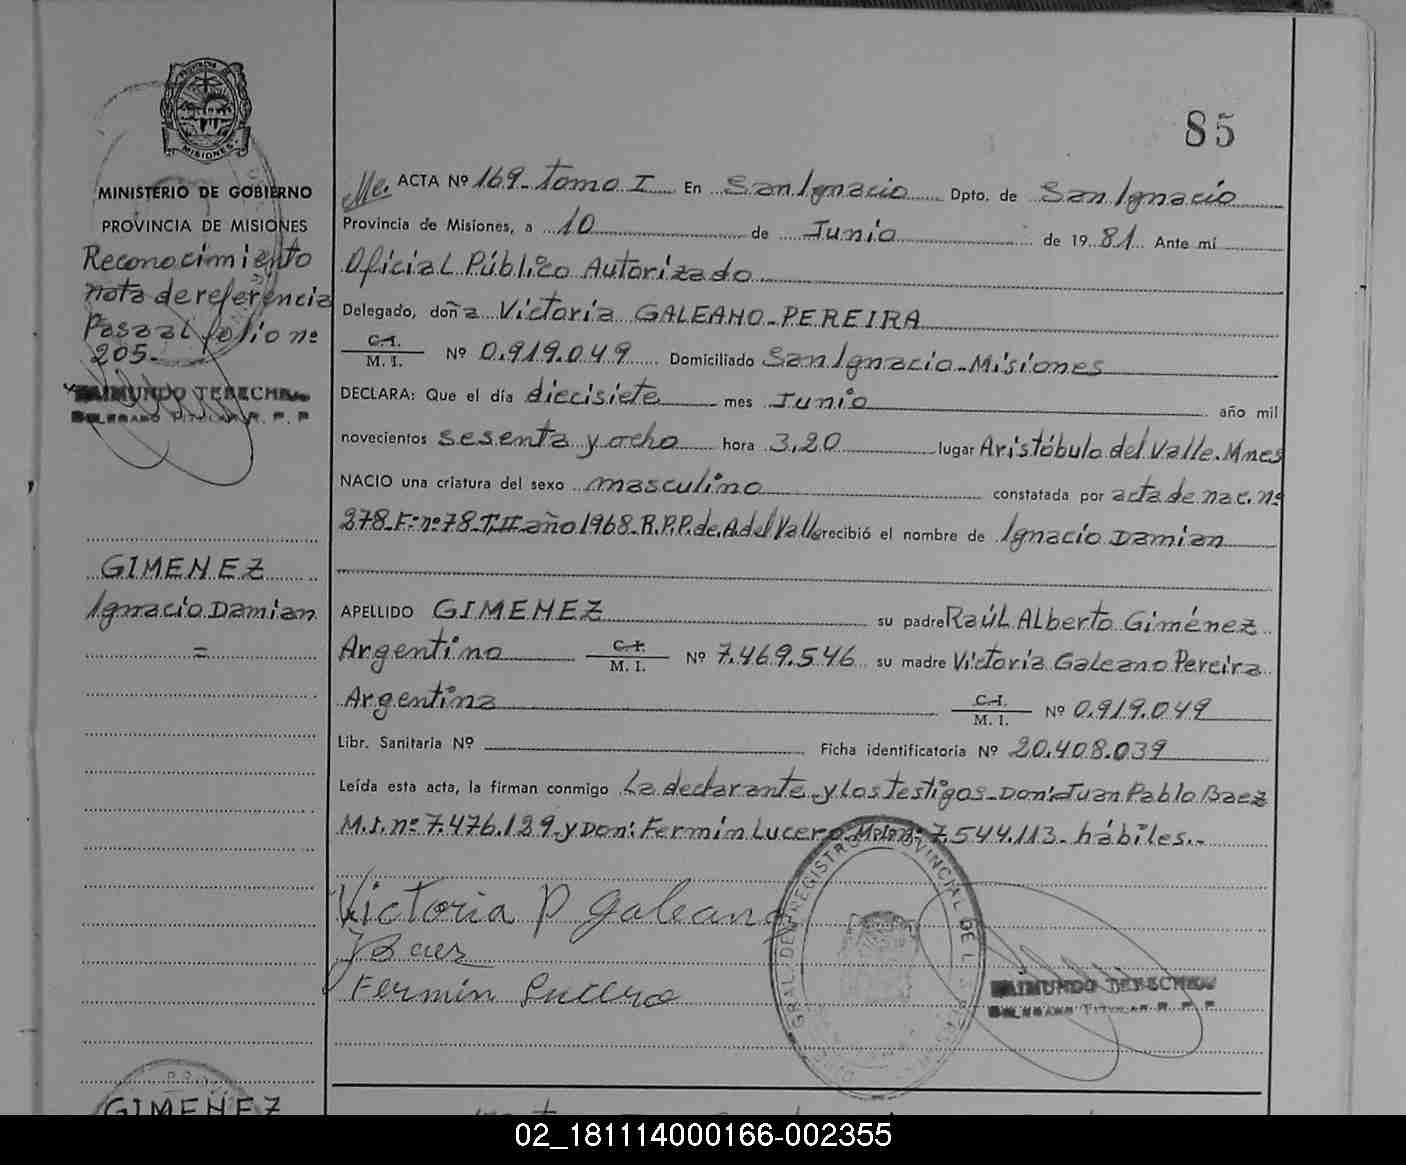 85
PROVINCIA DE
MISIONES
MINISTERIO DE GOBIERNO
PROVINCIA DE MISIONES
Reconocimiento
nota de referencia
Pasa al folio nº
205.-
RAIMUNDO TERECHKU
DELEGADO TITULAR R. P. P
GIMENEZ
Ignacio Damian
=
ACTA Nº 169- Tomo I En San Ignacio Dpto. de San Ignacio
Provincia de Misiones, a 10 de Junio de 1981 Ante mí
Oficial Público Autorizado
Delegado, doña Victoria GALEANO-PEREIRA
C.I.
M. I. Nº 0.919.049 Domiciliado San Ignacio-Misiones
DECLARA: Que el día diecisiete mes Junio año mil
novecientos sesenta y ocho hora 3,20 lugar Aristóbulo del Valle. Mnes
NACIO una criatura del sexo masculino constatada por acta de nac. nº
378-F: nº 78-T,II-año 1968-R.P.P. de A. del Valle recibió el nombre de Ignacio Damian
APELLIDO GIMENEZ su padre Raúl Alberto Giménez
Argentino C.I.
M. I. Nº 7.469.546 su madre Victoria Galeano Pereira
Argentina C.I.
M. I. Nº 0.919.049
Libr. Sanitaria Nº Ficha identificatoria Nº 20.408.039
Leída esta acta, la firman conmigo La declarante y Los testigos-Don: Juan Pablo Baez
M.I. nº 7.476.129-y Don: Fermín Lucero 7.544.113- hábiles.-
Victoria P Galeano
J Baez
Fermín Lucero
RAIMUNDO TERECHKU
DELEGADO TITULAR R. P. P.
GIMENEZ
02_181114000166-002355